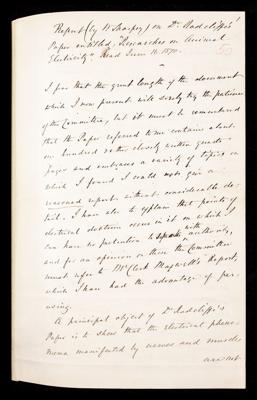 Report (by W Sharpey) on Dr Radcliffe's
Paper entitled, Researches on Animal
Electricity. Read June 11. 1870.
50
I fear that the great length of the document
which I now present will sorely try the patience
of the Committee, but it must be remembered
that the Paper referred to me contains about
one hundred rather closely written quarto
pages and embraces a variety of topics on
which I found I could not give a
reasoned report without considerable de-
tail. I have also to explain that points of
electrical doctrine occur in it on which I
can have no pretention to speak with authority,
and for an opinion on these the Committee
must refer to Mr Clerk Maxwell's Report,
which I have had the advantage of per-
using.
A principal object of Dr Radcliffe's
Paper is to show that the electrical pheno-
mena manifested by nerves and muscles
are not